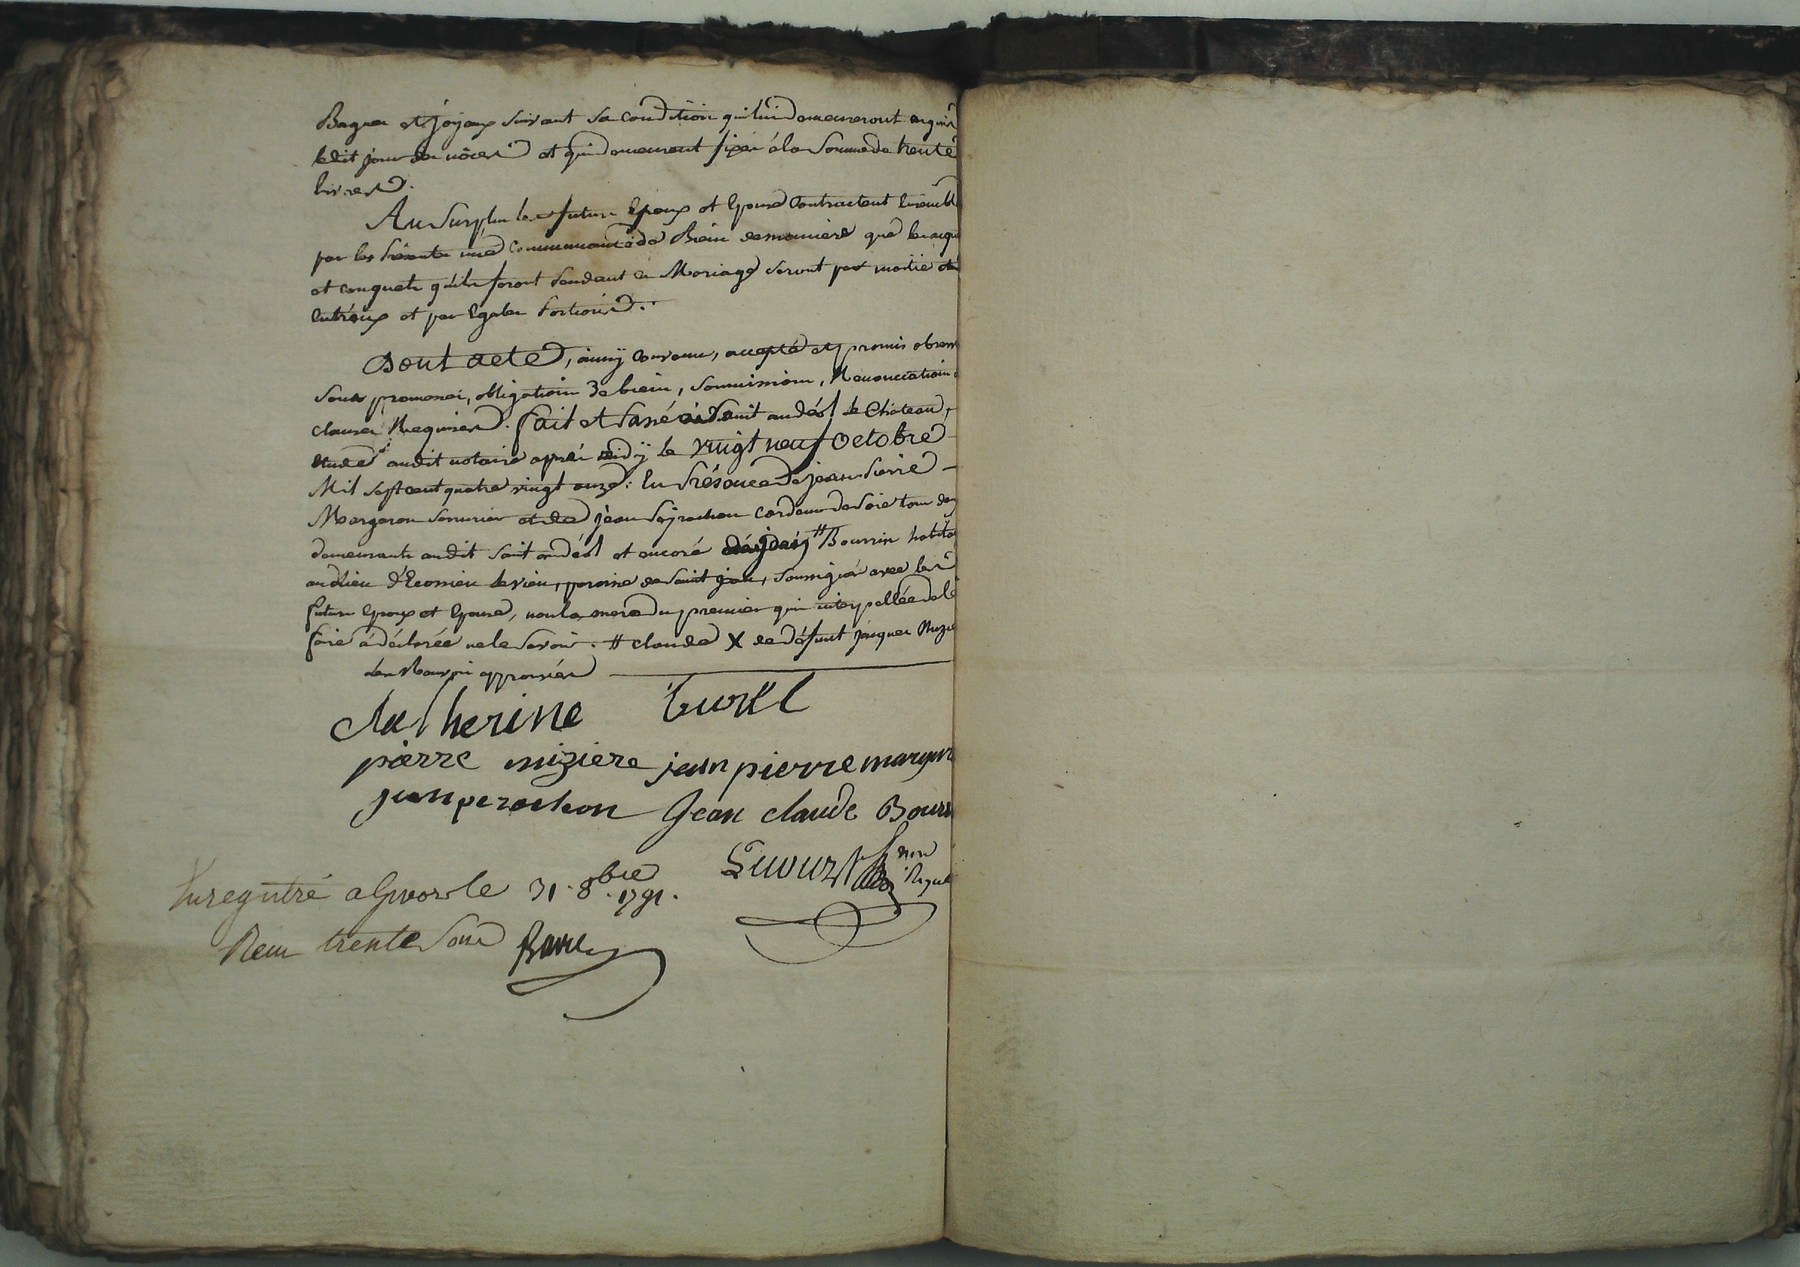 Bagues et joyaux suivant sa condition qui lui demeureront acquis
ledit jour des nôces et qui demeurent fixés à la somme de trente
livres.
Au surplus les futurs Epoux et Epouse Contractent Ensemble
par les présentes une Communauté de Biens de maniere que les acqu
et conquets qu'ils feront pendant ce Mariage seront par moitié
entr'eux et par Egales portions.
Dont acte, ainsy convenu, accepté et promis observ
sous promesses, obligation de biens, soumissions, Renonciations
clauses Requises. fait et passé à Saint andéol le Château,
étude dudit notaire après midy le vingt neuf octobre
Mil sept cent quatre vingt onze: En présence de jean Pierre
Margaron serrurier et de jean peyrachon cardeur de soie tous deux
demeurants audit saint andéol et encore # Bourrin habita
au lieu d'Ecossieu le vieu, paroisse de saint jean, soussignés avec les
futurs Epoux et Epouse, non la mere du premier qui interpellée de le
faire à déclarée ne le savoir. # claude X de défunt jacques Mizie
les Renvois approuvés
Catherine turel
pierre miziere jean pierre margaro
jean perachon Jean claude Bourr
non
Enregistré a givors le 31. 8bre 1791.
Recu trente sous